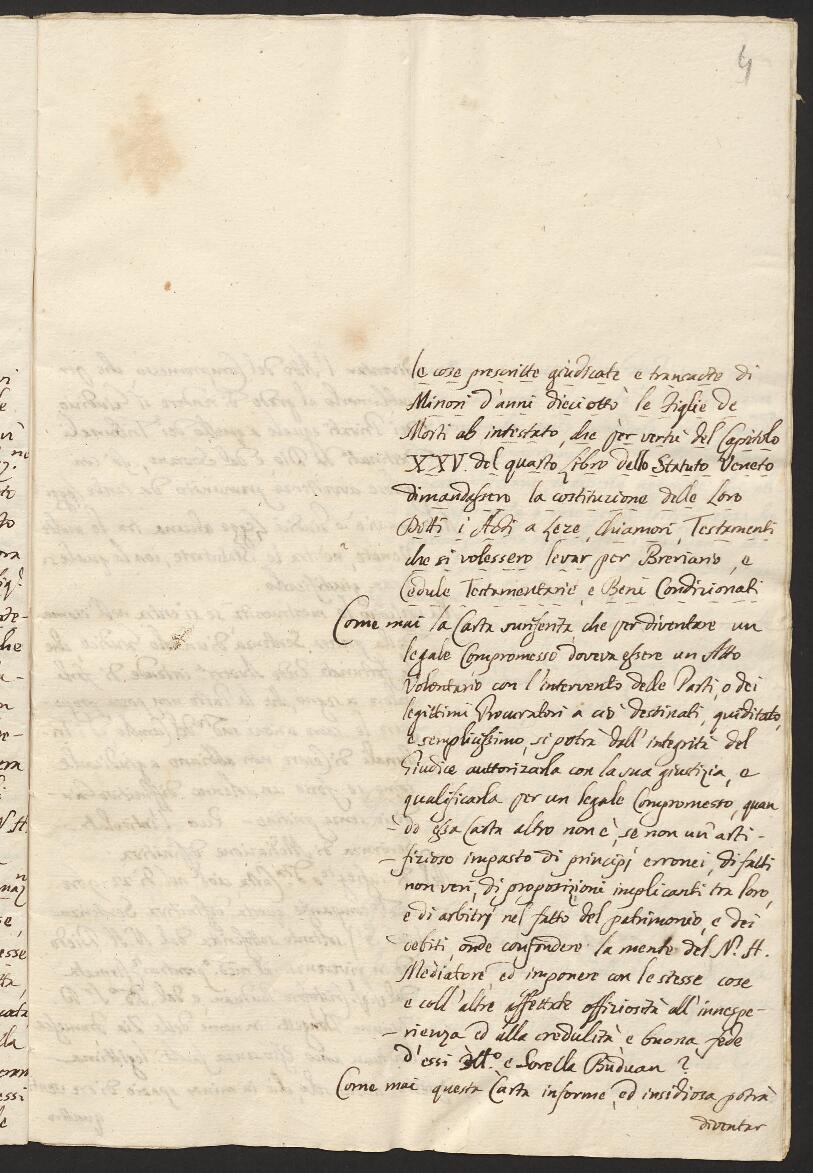 4
le cose prescritte giudicate e transacte di
Minori d'anni dieciotto le Figlie de
Morti ab intestato, che per vertù del Capitolo
XXV. del quarto Libro dello Statuto Veneto
dimandassero la costituzione delle Loro
Dotti i Atti a Leze, Chiamori, Testamenti
che si volessero levar per Breviario, e
Cedule Testamentarie, e Beni Condizionati
Come mai la Carta surriferita che per diventare un
legale Compromesso doveva essere un Atto
Volontario con l'intervento delle Parti, o dei
legittimi Procuratori a ciò destinati, quiditato,
e semplicissimo, si potrà dall'integrità del
Giudice auttorizarla con la sua giustizia, e
qualificarla per un legale Compromesso, quan
- do essa Carta altro non è, se non un'arti-
- fizioso impasto di principj erronei, di fatti
non veri, di proposizioni implicanti tra loro,
e di arbitrj nel fatto del patrimonio, e dei
debiti, onde confondere la mente del N. H.
Mediatore ed imponere con le stesse cose
e coll'altre affettate offiziosità all'innespe-
- rienza ed alla credulità e buona fede
d'essi e Sorella Buduan ?
Come mai questa Carta informe, ed insidiosa potrà
diventar